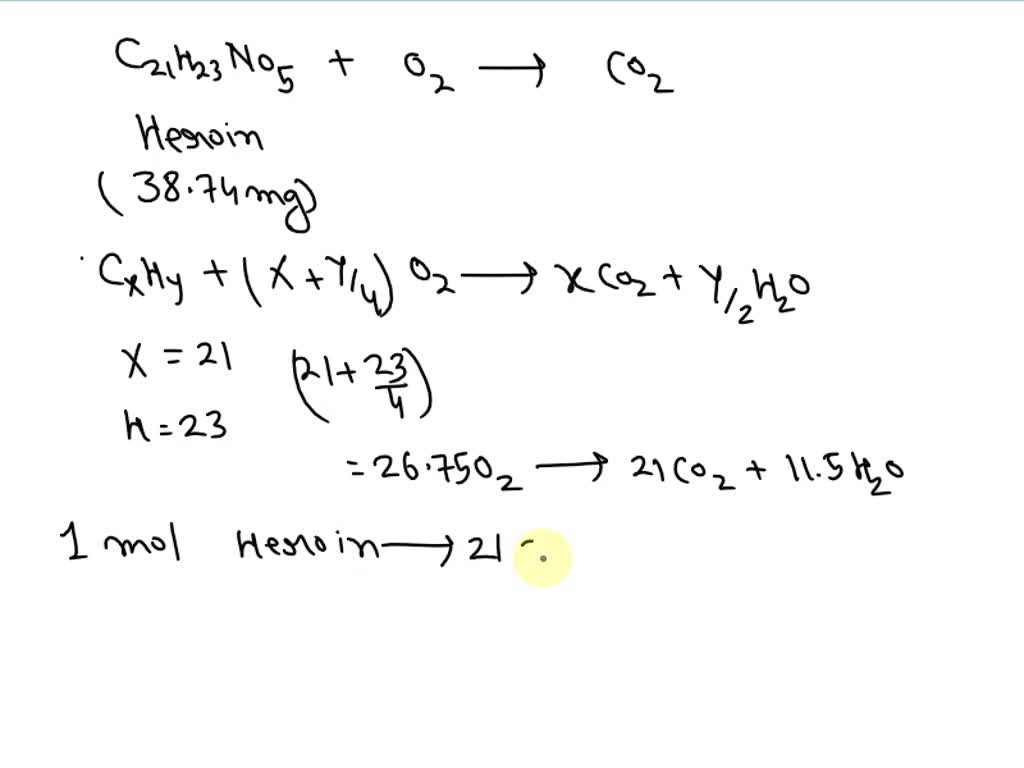 C₂₁H₂₃NO₅ + O₂ → CO₂
Heroin
(38.74mg)
CxHy + (x + Y/4) O₂ → xCO₂ + Y/2 H₂O
x = 21 (21 + 23/4)
h = 23
= 26.75O₂ → 21CO₂ + 11.5H₂O
1 mol Heroin → 21